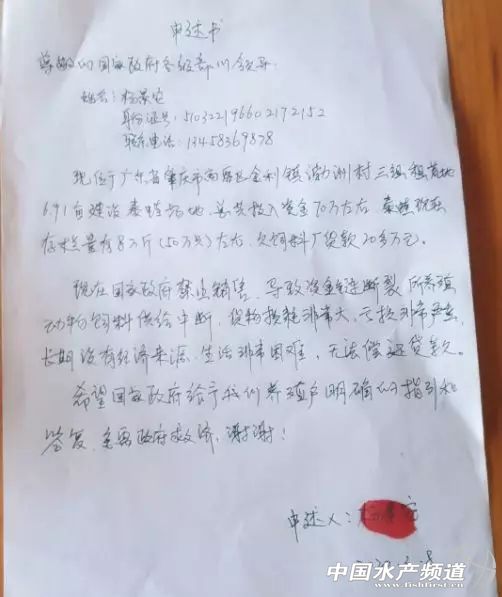 申述书
尊敬的国家政府各级部门领导
姓名：杨景
身份证号：510322196602192152
联系电话：13458369878
现位于广东省肇庆市高要区金利镇 洲村三组租荒地
6.91亩建设养 场地，总共投入资金70万左右，养 现
存 量有8万斤(50万只)左右，欠饲料厂贷款20多万元。
现在国家政府禁止销售，导致资金链断裂，所养殖
动物饲料供给中断，货物损耗非常大，亏损非常严重，
长期没有经济来源，生活非常困难，无法偿还贷款。
希望国家政府给予我们养殖户明确的指引和
答复，急需政府救济，谢谢！
申述人：
中国水产频道
www.fishfirst.cn